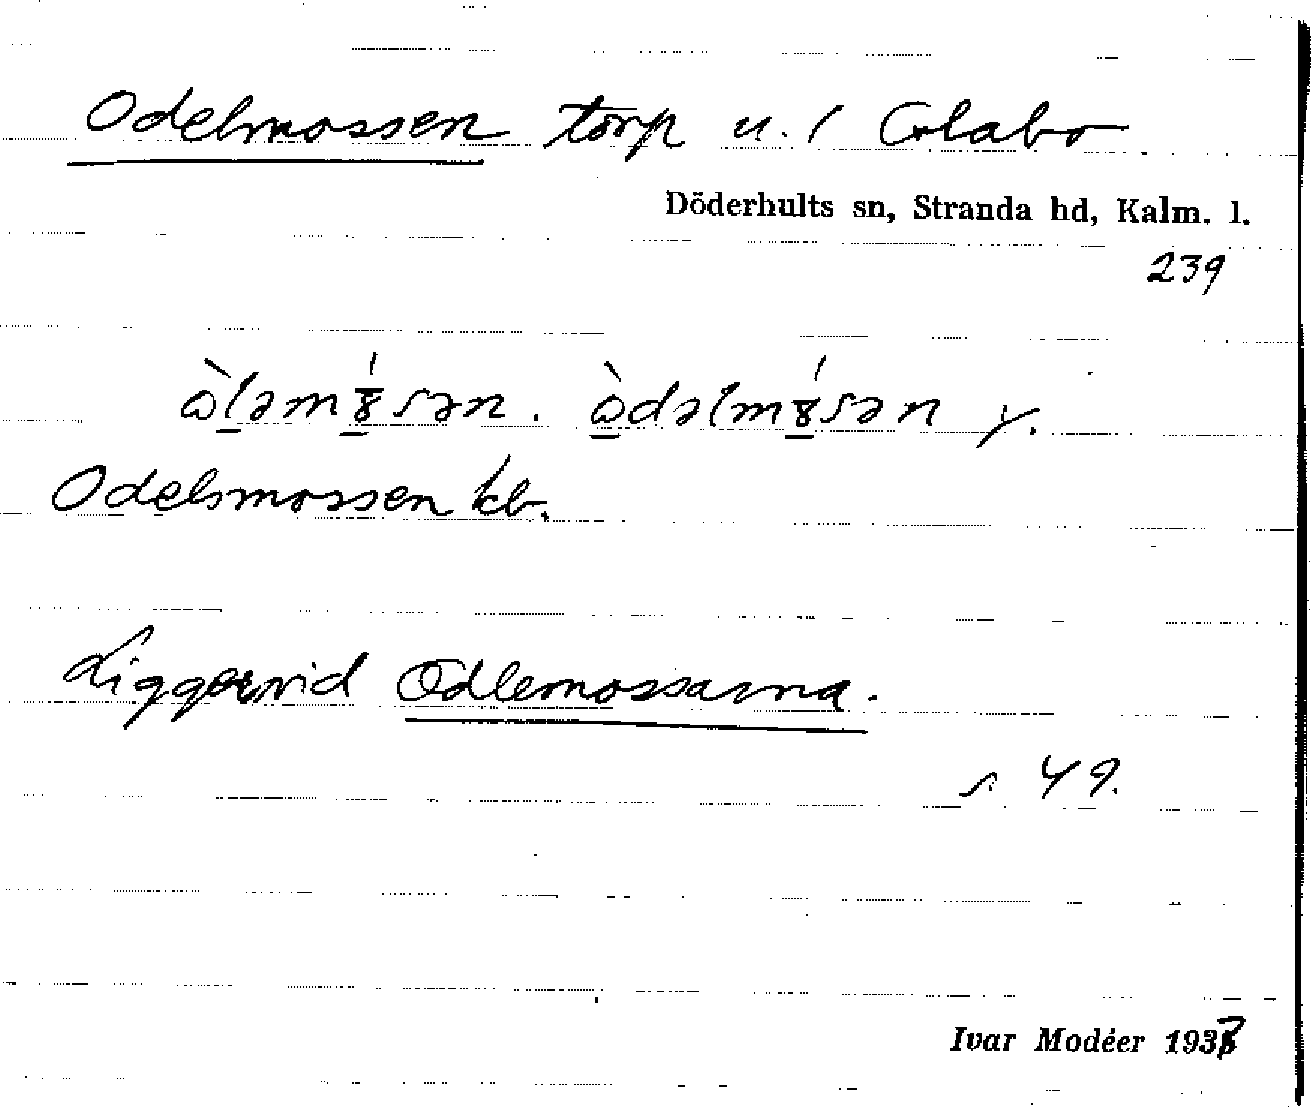 Odelmossen torp u. 1 Colabo
Döderhults sn, Stranda hd, Kalm. l.
239
òləmɣ́sən. òdəlmɣ́sən y.
Odelsmossen kb.
Ligger vid Odlemossarna.
s. 49.
Ivar Modéer 1937